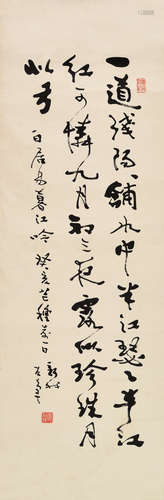 一道残阳铺水中半江瑟瑟半江
红可怜九月初三夜露似珍珠月
似弓
白居易暮江吟 癸亥芒种前一日